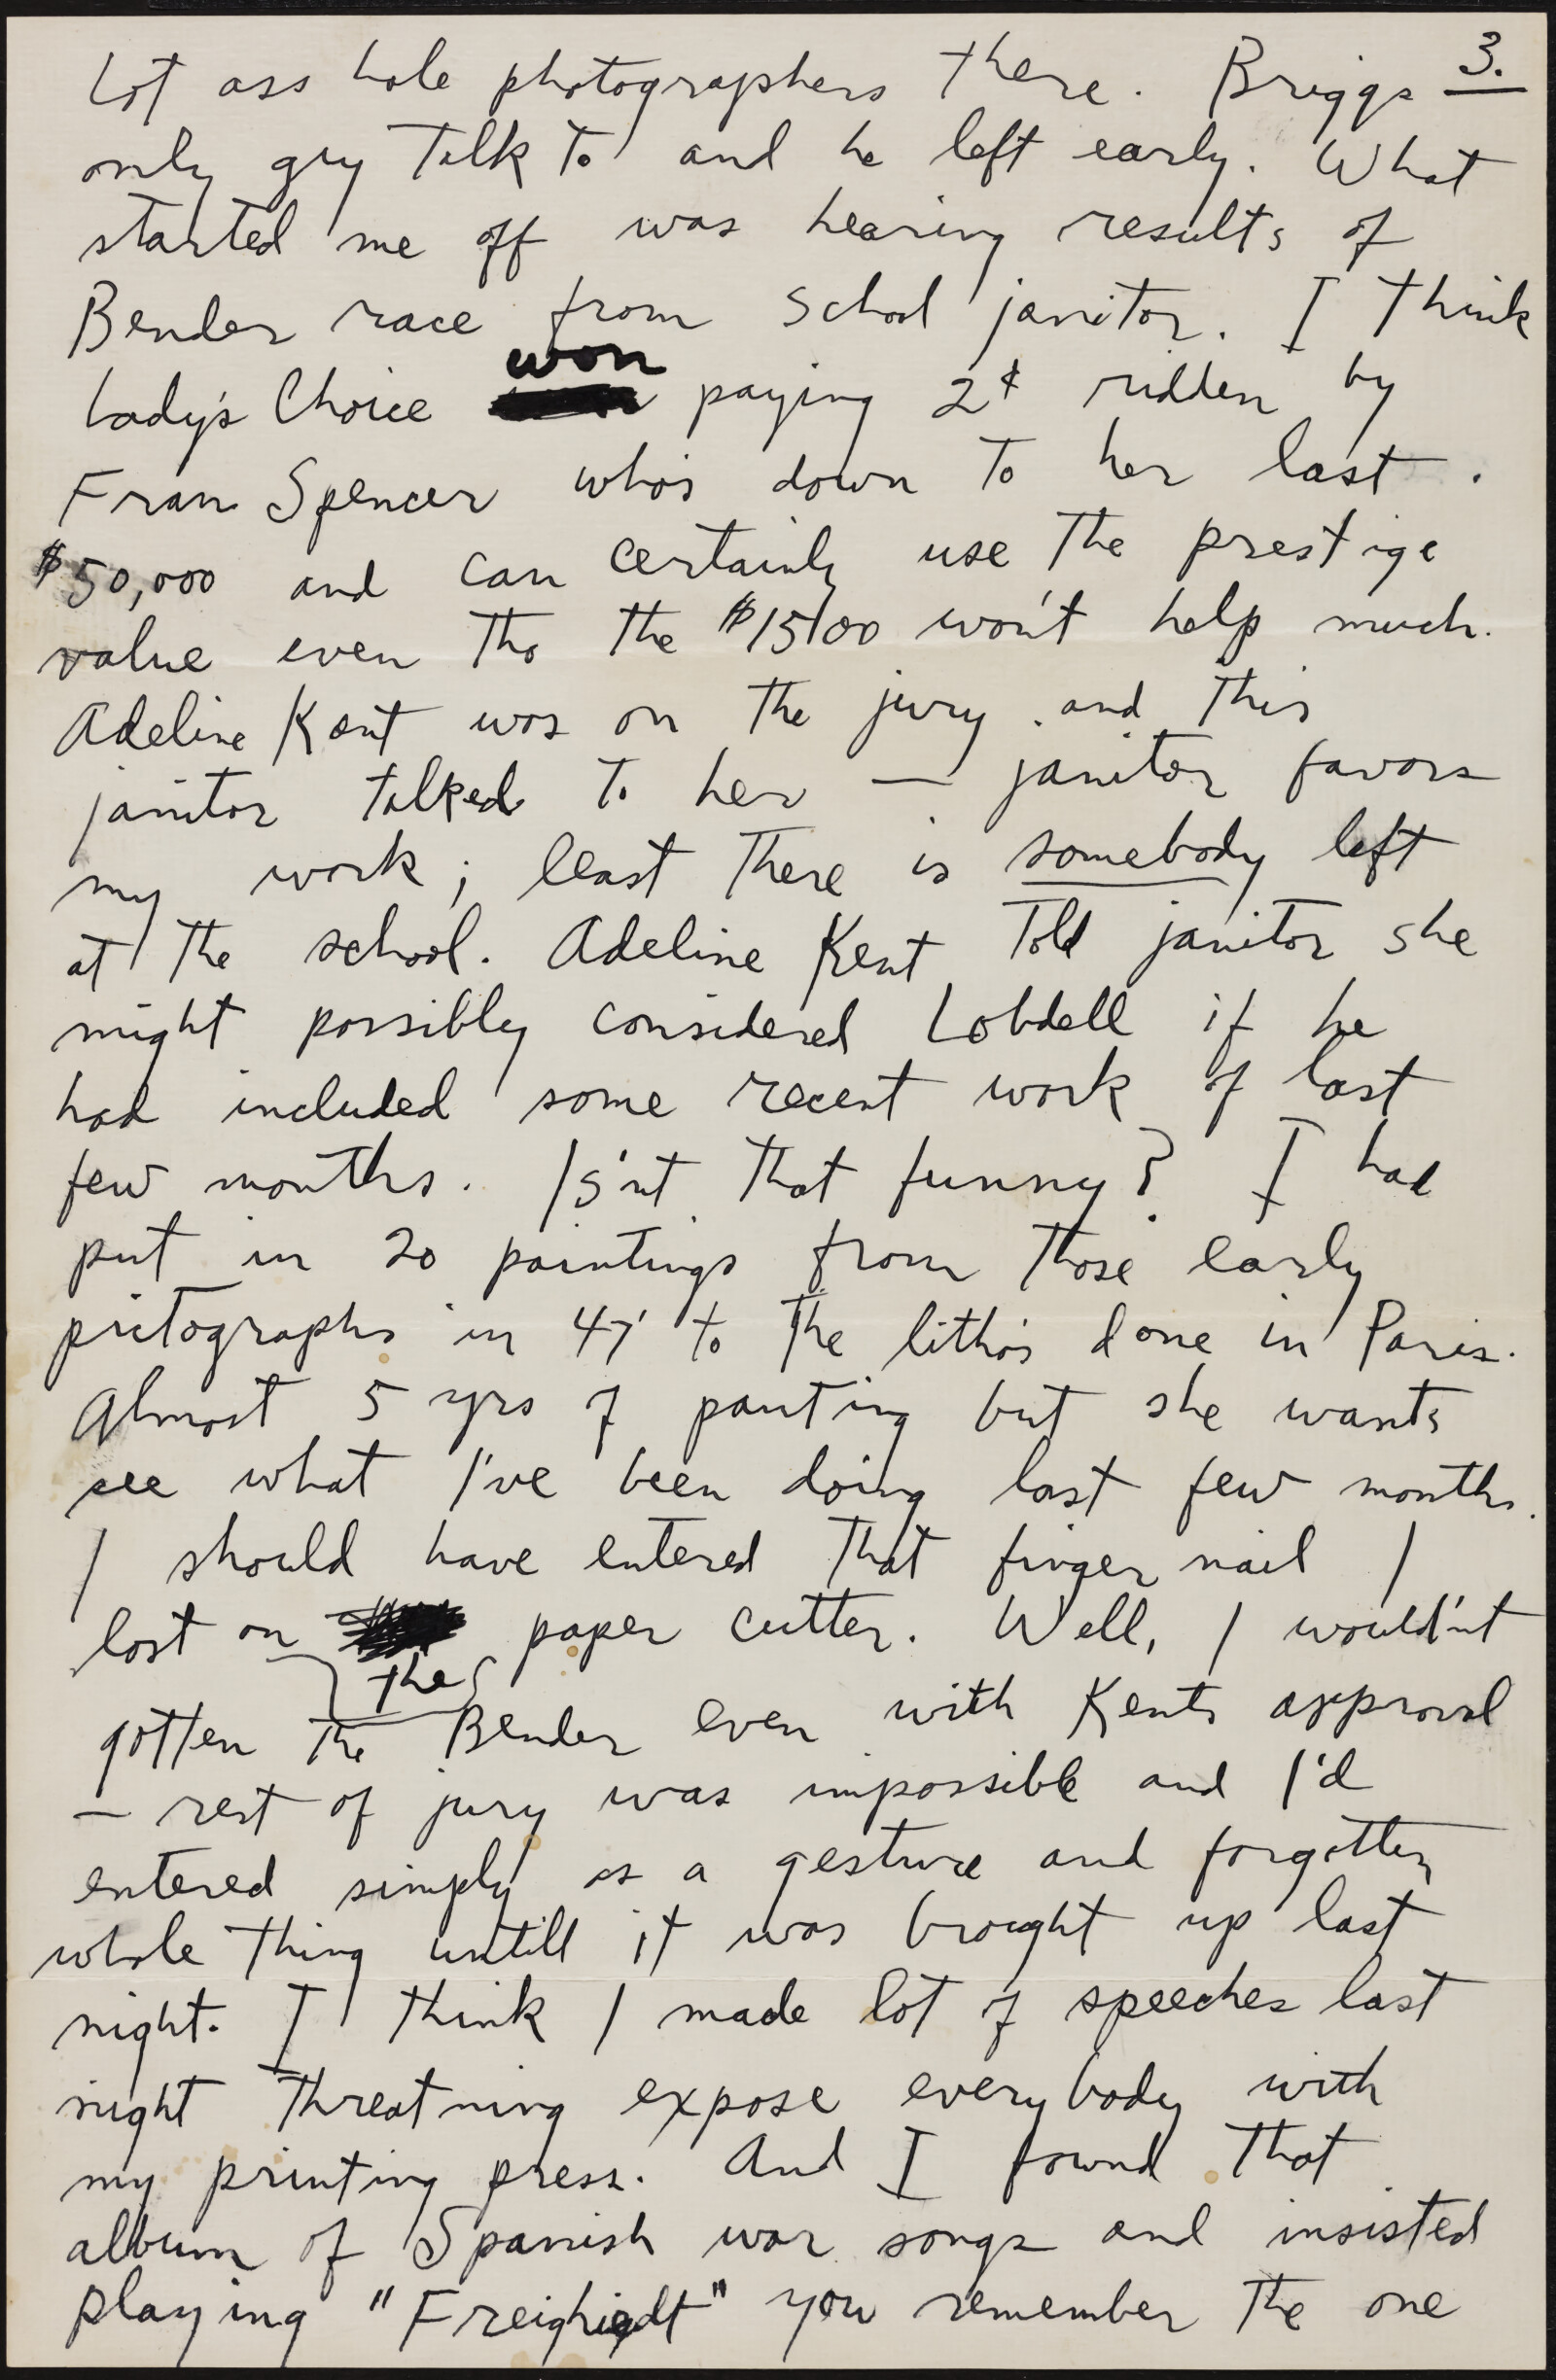 3.
Lot ass hole photographers there. Briggs
only guy talk to and he left early. What
started me off was hearing results of
Bender race from school janitor. I think
Lady's Choice won paying 2¢ ridden by
Fran Spencer who's down to her last
$50,000 and can certainly use the prestige
value even tho the $1500 won't help much.
Adeline Kent was on the jury and this
janitor talked to her — janitor favors
my work; least there is somebody left
at the school. Adeline Kent told janitor she
might possibly considered Lobdell if he
had included some recent work of last
few months. Is'nt that funny? I had
put in 20 paintings from those early
pictographs in 47' to the litho's done in Paris.
Almost 5 yrs of painting but she wants
see what I've been doing last few months.
I should have entered that finger nail I
lost on the paper cutter. Well, I would'nt
gotten the Bender even with Kents approval
— rest of jury was impossible and I'd
entered simply as a gesture and forgotten
whole thing untill it was brought up last
night. I think I made lot of speeches last
night threatning expose everybody with
my printing press. And I found that
album of Spanish war songs and insisted
playing " " you remember the one